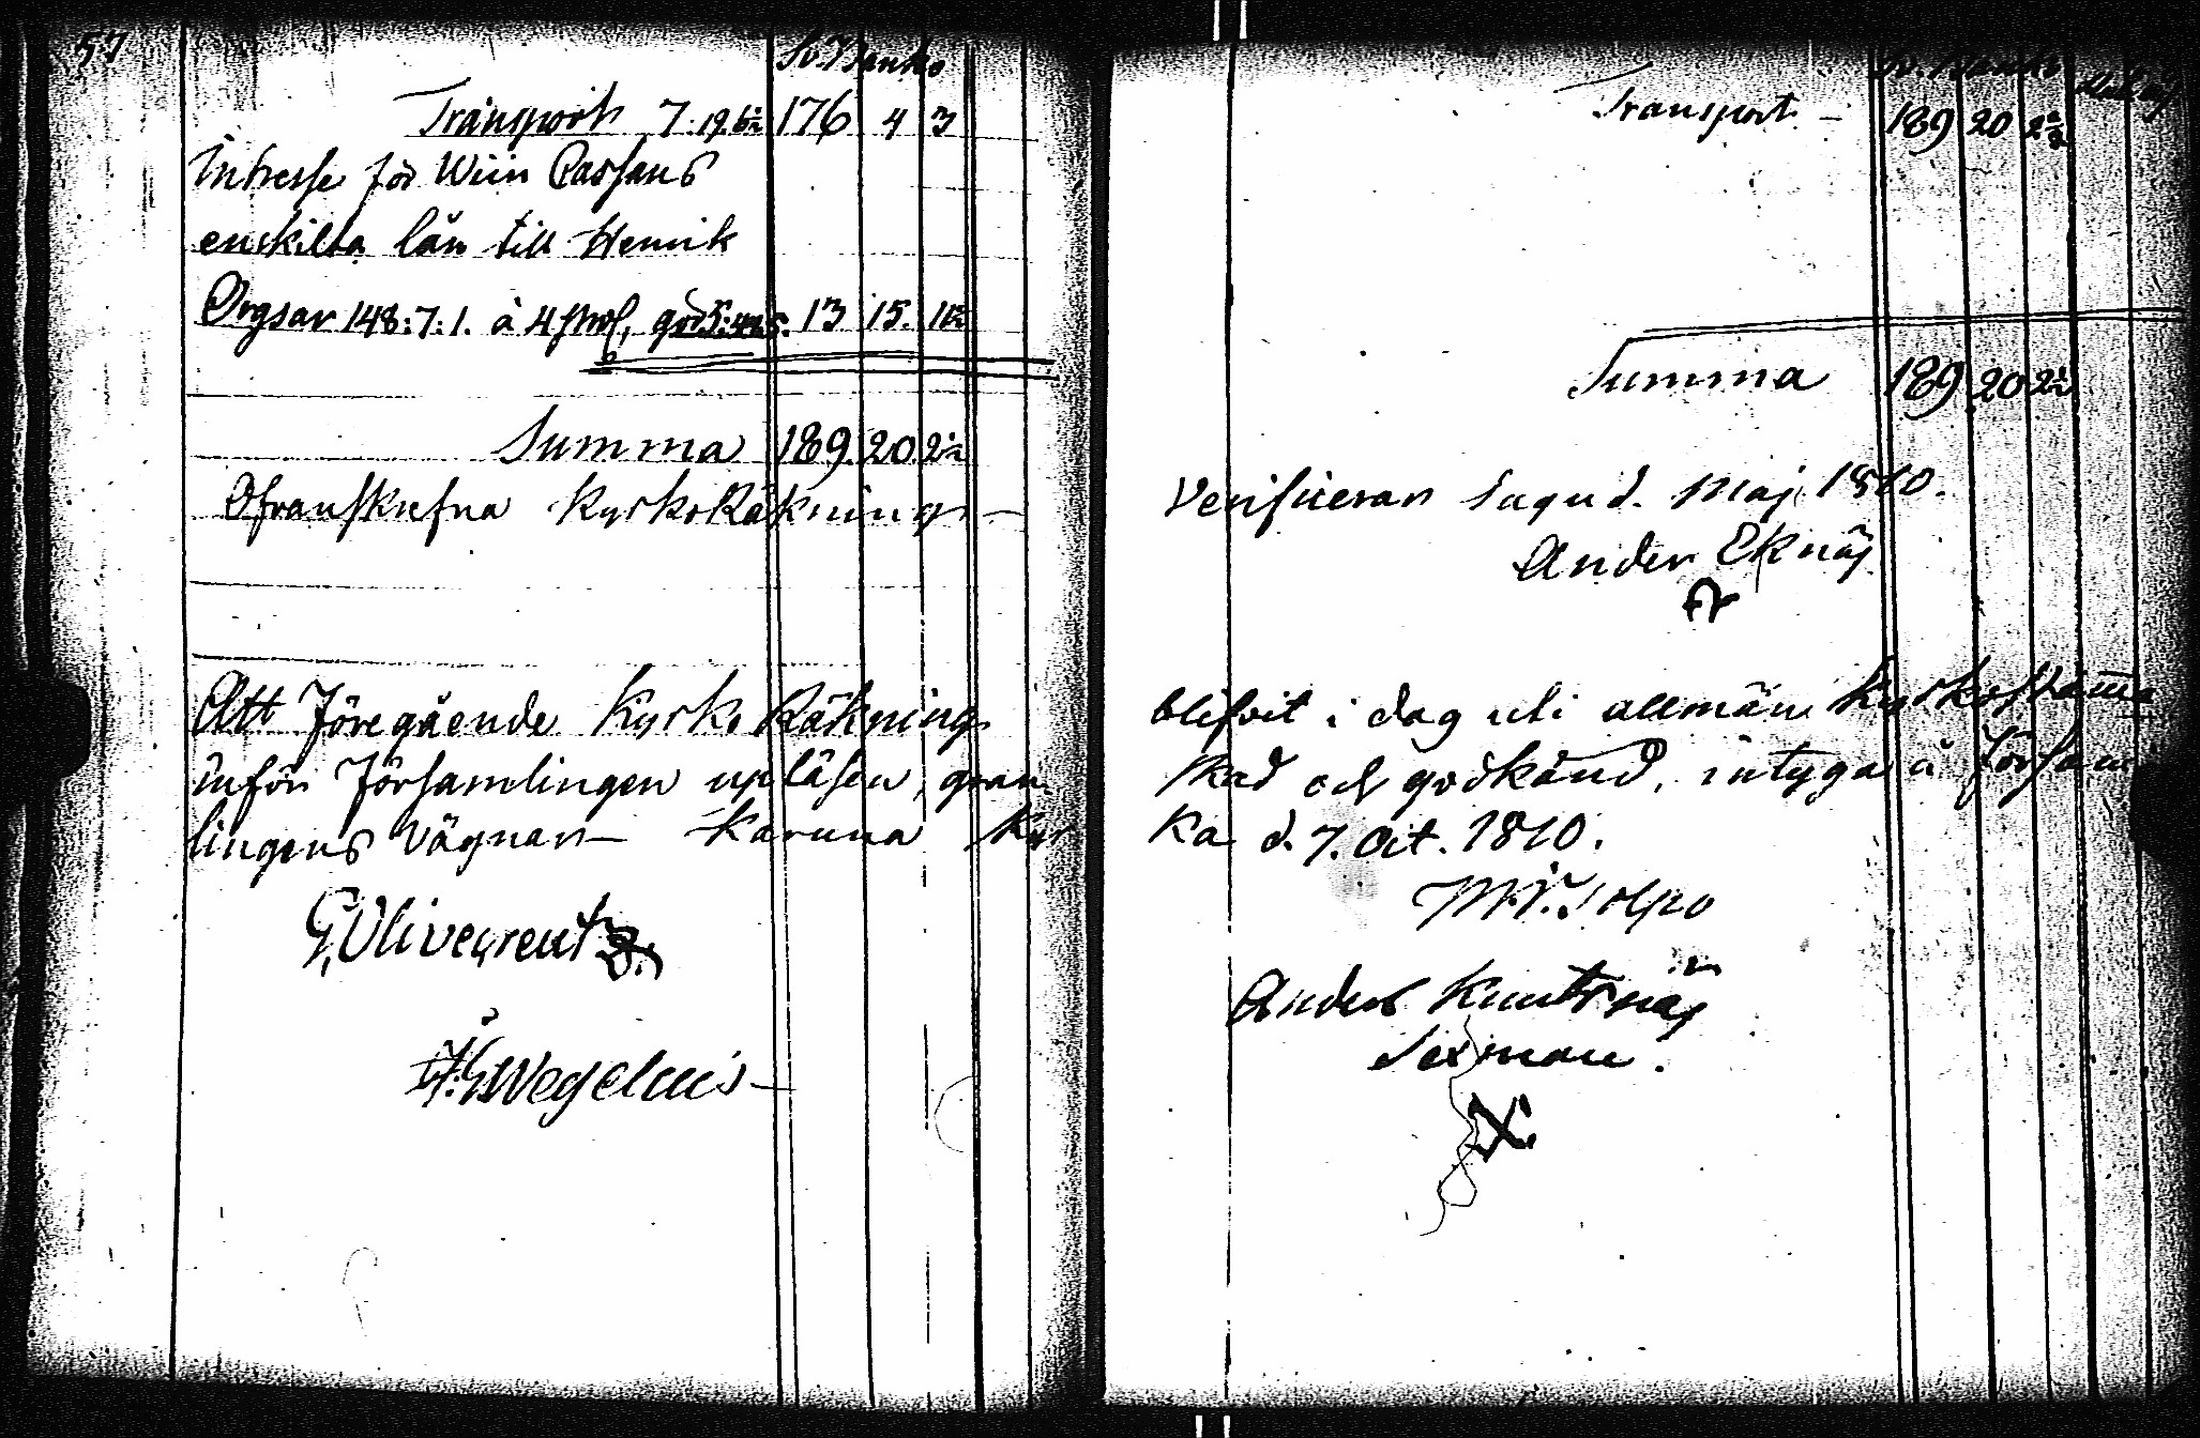 57
Sv. Banko
Transport 7. 19. 6½ 176 4 3
Intresse för Wiin Cassans
enskilta lån till Henrik
Orgsar 148: 7: 1. à 4 proC, gör 13 15. 11½
Summa 189. 20. 2½
Ofranskrefna KyrkoRäkning
Att föregående Kyrko Räkning
inför Församlingen upläsen, gran
lingens vägnar Karuna Kyr
G. Olivecreutz.
Wegelius
Transport 189 20 2½
Summa 189 20 2½
Verificeran Sagu d. Maj 1810.
Ander Eknäs
blifvit i dag uti allmän Kyrkostämma
skad och godkänd, intyga å Församl
ka d. 7. Oct. 1810.
Anders Knutsnäs
Sexman.